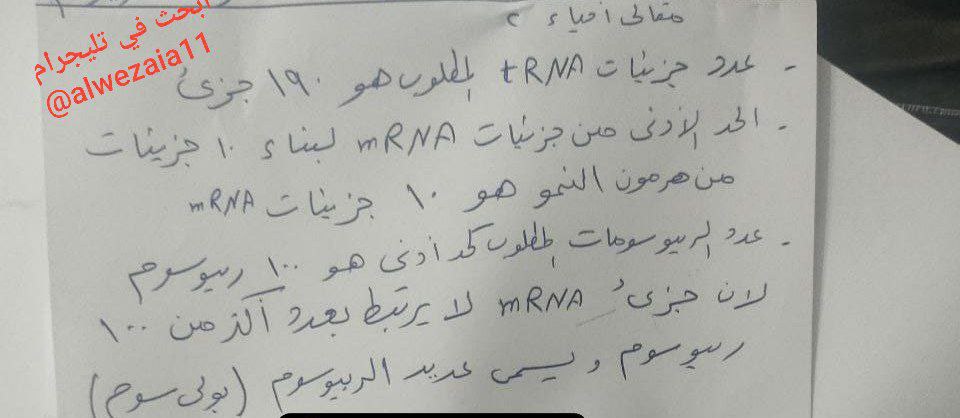 ابحث في تليجرام
@alwezaia11
مقالى أحياء ٢
- عدد جزيئات tRNA المطلوب هو ١٩٠ جزئ
- الحد الأدنى من جزئيات mRNA لبناء ١٠ جزيئات
من هرمون النمو هو ١٠ جزيئات mRNA
- عدد الريبوسومات المطلوب كحد أدنى هو ١٠٠ ريبوسوم
لان جزئ mRNA لا يرتبط بعدد أكثر من ١٠٠
ريبوسوم ويسمى عديد الريبوسوم (بولى سوم)